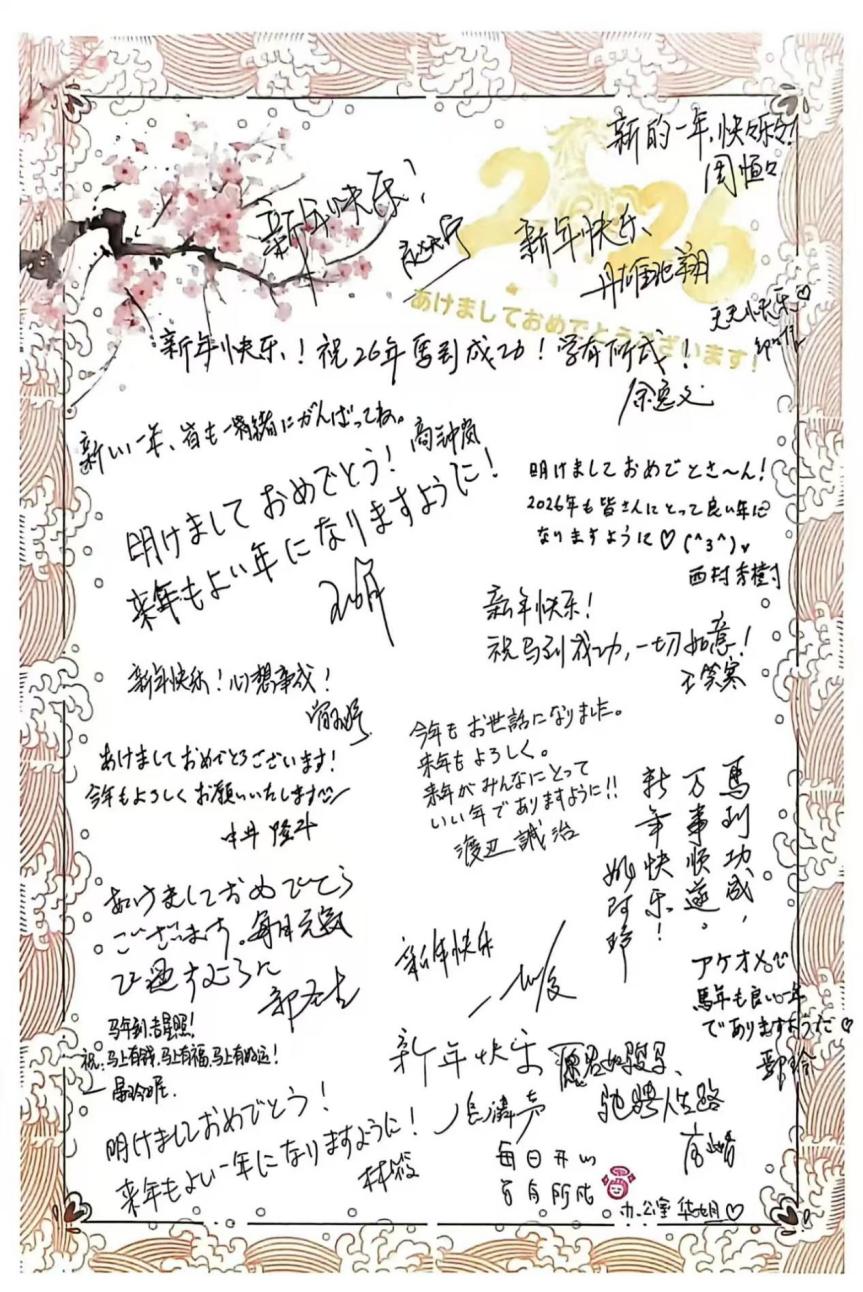 新的一年,快々乐々!
周恒々
新年快乐!
2026
新年快乐、
あけましておめでとうございます!
天天快乐♡
新年快乐!祝26年馬到成功!学有所成!
余逸文
新しい一年、皆も一緒にがんばってね。
高訸岚
明けましておめでとう!
来年もよい年になりますように!
明けましておめでとさ〜ん!
2026年も皆さんにとって良い年に
なりますように♡(^3^)♥
西村秀樹
新年快乐!
祝马到成功,一切如意!
王笑寒
新年快乐!心想事成!
あけましておめでとうございます!
今年もよろしくお願いいたします
中井隆斗
今年もお世話になりました。
来年もよろしく。
来年がみんなにとって
いい年でありますように!!
渡辺誠治
馬到功成,
万事顺遂。
新年快乐!
あけましておめでとう
ございます。毎日元気
で過すように
新年快乐
アケオメで
馬年も良い一年
でありますように♡
马年到吉星照!
祝:马上有钱,马上有福,马上有好运!
新年快乐
愿君如骏马、
驰骋人生路
明けましておめでとう!
来年もよい一年になりますように!
林筱
每日开心
百有所成
办公室 ♡